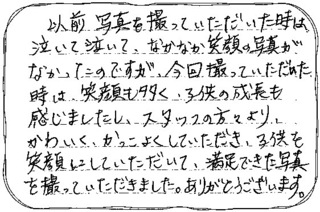 以前写真を撮っていただいた時は
泣いて泣いて、なかなか笑顔の写真が
なかったのですが、今回撮っていただいた
時は、笑顔も多く、子供の成長も
感じましたし、スタッフの方々より、
かわいく、かっこよくしていただき、子供を
笑顔にしていただいて、満足できた写真
を撮っていただきました。ありがとうございます。